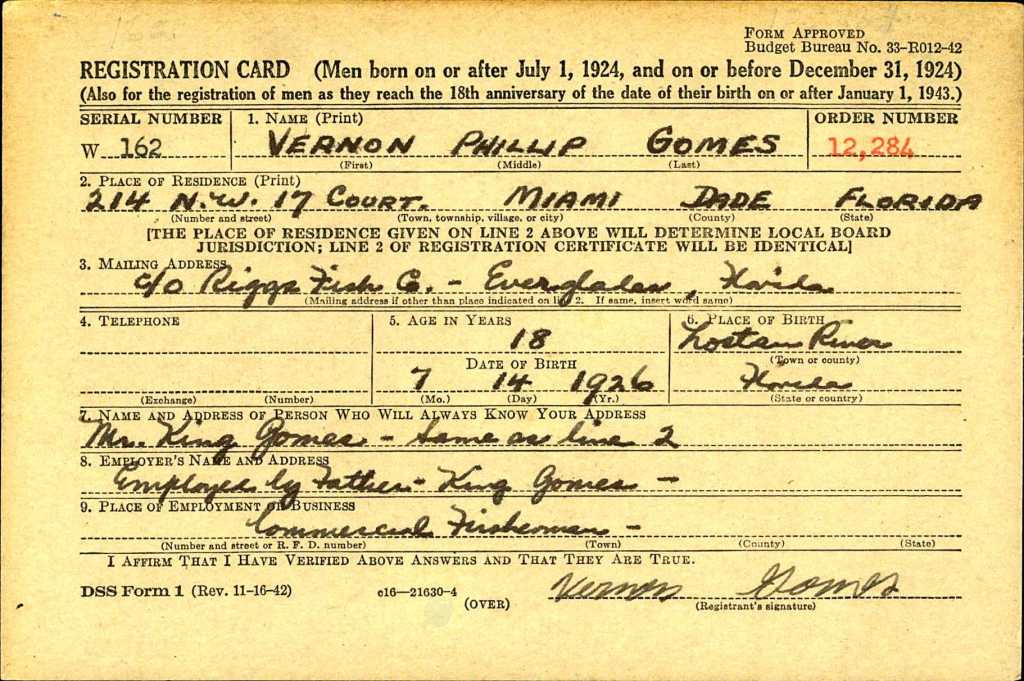 FORM APPROVED
Budget Bureau No. 33-R012-42
REGISTRATION CARD (Men born on or after July 1, 1924, and on or before December 31, 1924)
(Also for the registration of men as they reach the 18th anniversary of the date of their birth on or after January 1, 1943.)
SERIAL NUMBER 1. NAME (Print) ORDER NUMBER
W 162 VERNON PHILLIP GOMES 12,284
(First) (Middle) (Last)
2. PLACE OF RESIDENCE (Print)
214 N.W. 17 COURT. MIAMI DADE FLORIDA
(Number and street) (Town, township, village, or city) (County) (State)
[THE PLACE OF RESIDENCE GIVEN ON LINE 2 ABOVE WILL DETERMINE LOCAL BOARD
JURISDICTION; LINE 2 OF REGISTRATION CERTIFICATE WILL BE IDENTICAL]
3. MAILING ADDRESS
c/o Riggs Fish Co. - Everglades, Florida
(Mailing address if other than place indicated on line 2. If same, insert word same)
4. TELEPHONE 5. AGE IN YEARS 6. PLACE OF BIRTH
18 Lostan River
DATE OF BIRTH (Town or county)
7 14 1926 Florida
(Exchange) (Number) (Mo.) (Day) (Yr.) (State or country)
7. NAME AND ADDRESS OF PERSON WHO WILL ALWAYS KNOW YOUR ADDRESS
Mr. King Gomes - Same as line 2
8. EMPLOYER'S NAME AND ADDRESS
Employed by Father - King Gomes -
9. PLACE OF EMPLOYMENT OR BUSINESS
Commercial Fisherman -
(Number and street or R. F. D. number) (Town) (County) (State)
I AFFIRM THAT I HAVE VERIFIED ABOVE ANSWERS AND THAT THEY ARE TRUE.
DSS Form 1 (Rev. 11-16-42) c16-21630-4 (OVER) Vernon Gomes
(Registrant's signature)